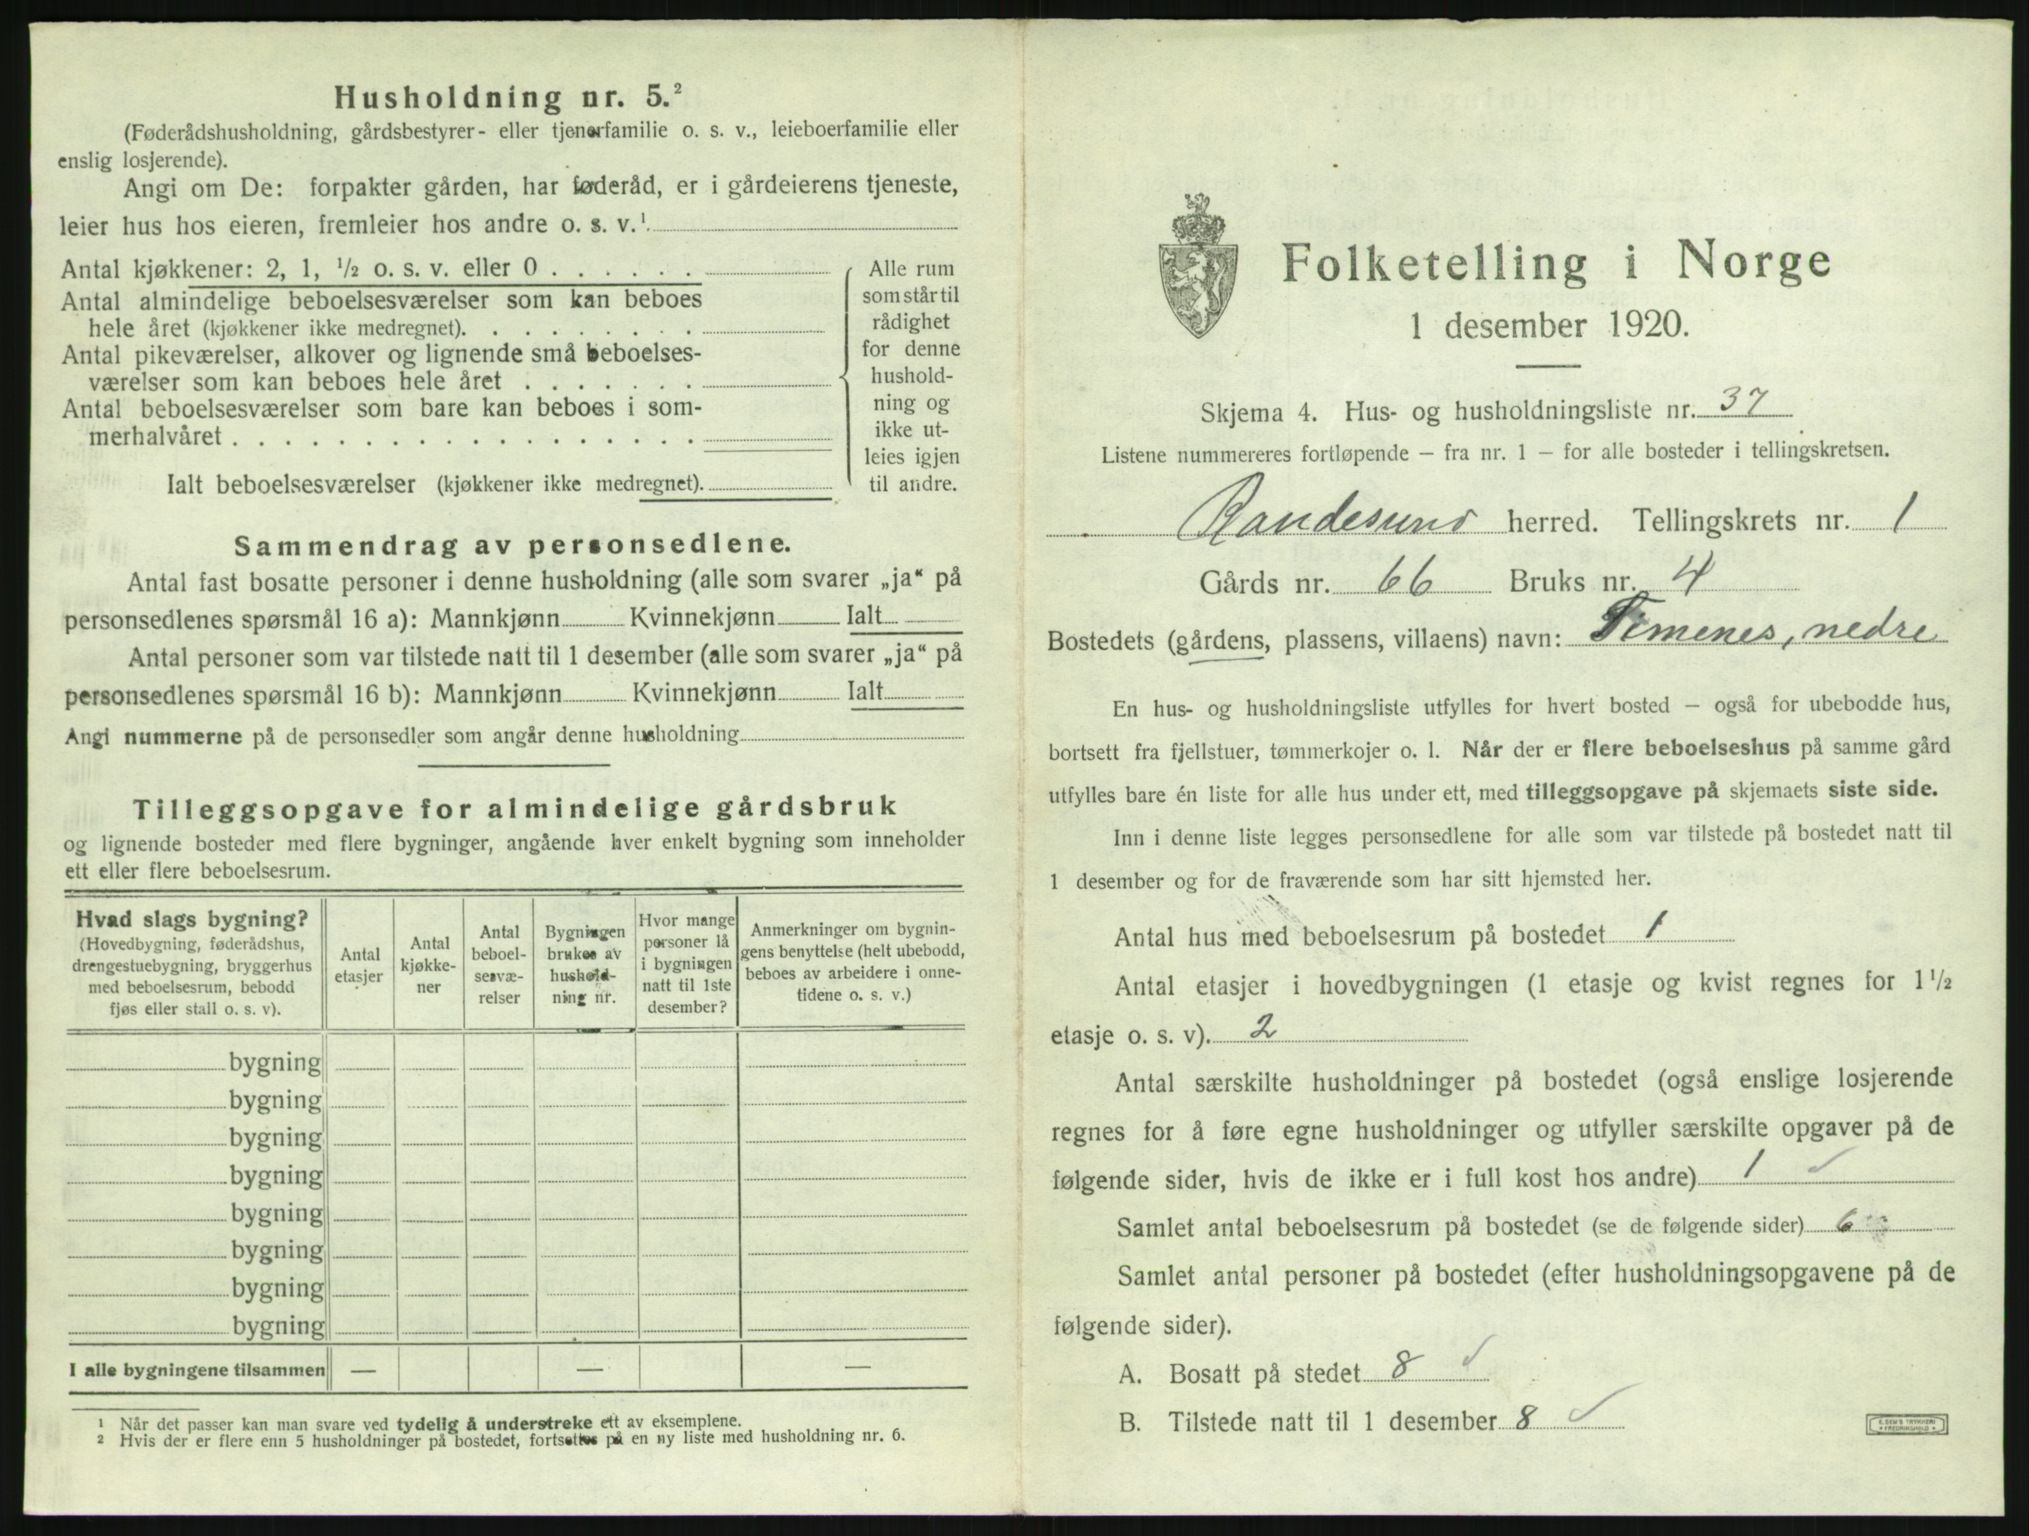 Husholdning nr. 5.²
(Føderådshusholdning, gårdsbestyrer- eller tjenerfamilie o. s. v., leieboerfamilie eller
enslig losjerende).
Angi om De: forpakter gården, har føderåd, er i gårdeierens tjeneste,
leier hus hos eieren, fremleier hos andre o. s. v.¹
Antal kjøkkener: 2, 1, ½ o. s. v. eller 0 . . . . . .
Antal almindelige beboelsesværelser som kan beboes
hele året (kjøkkener ikke medregnet). . . . . . . . .
Antal pikeværelser, alkover og lignende små beboelses-
værelser som kan beboes hele året . . . . . . .
Antal beboelsesværelser som bare kan beboes i som-
merhalvåret . . . . . . . . . . . . . . . . . .
Ialt beboelsesværelser (kjøkkener ikke medregnet).
Alle rum
som står til
rådighet
for denne
hushold-
ning og
ikke ut-
leies igjen
til andre.
Sammendrag av personsedlene.
Antal fast bosatte personer i denne husholdning (alle som svarer „ja“ på
personsedlenes spørsmål 16 a): Mannkjønn Kvinnekjønn Ialt
Antal personer som var tilstede natt til 1 desember (alle som svarer „ja“ på
personsedlenes spørsmål 16 b): Mannkjønn Kvinnekjønn Ialt
Angi nummerne på de personsedler som angår denne husholdning
Tilleggsopgave for almindelige gårdsbruk
og lignende bosteder med flere bygninger, angående hver enkelt bygning som inneholder
ett eller flere beboelsesrum.
Hvad slags bygning?
(Hovedbygning, føderådshus,
drengestuebygning, bryggerhus
med beboelsesrum, bebodd
fjøs eller stall o. s. v).
Antal
etasjer
Antal
kjøkke-
ner
Antal
beboel-
sesvæ-
relser
Bygningen
brukes av
hushold-
ning nr.
Hvor mange
personer lå
i bygningen
natt til 1ste
desember?
Anmerkninger om bygnin-
gens benyttelse (helt ubebodd,
beboes av arbeidere i onne-
tidene o. s. v.)
bygning
bygning
bygning
bygning
bygning
bygning
bygning
bygning
I alle bygningene tilsammen — — —
¹ Når det passer kan man svare ved tydelig å understreke ett av eksemplene.
² Hvis der er flere enn 5 husholdninger på bostedet, fortsettes på en ny liste med husholdning nr. 6.
Folketelling i Norge
1 desember 1920.
Skjema 4. Hus- og husholdningsliste nr. 37
Listene nummereres fortløpende – fra nr. 1 – for alle bosteder i tellingskretsen.
Randesund herred. Tellingskrets nr. 1
Gårds nr. 66 Bruks nr. 4
Bostedets (gårdens, plassens, villaens) navn: Timenes, nedre
En hus- og husholdningsliste utfylles for hvert bosted – også for ubebodde hus,
bortsett fra fjellstuer, tømmerkojer o. l. Når der er flere beboelseshus på samme gård
utfylles bare én liste for alle hus under ett, med tilleggsopgave på skjemaets siste side.
Inn i denne liste legges personsedlene for alle som var tilstede på bostedet natt til
1 desember og for de fraværende som har sitt hjemsted her.
Antal hus med beboelsesrum på bostedet 1
Antal etasjer i hovedbygningen (1 etasje og kvist regnes for 1½
etasje o. s. v). 2
Antal særskilte husholdninger på bostedet (også enslige losjerende
regnes for å føre egne husholdninger og utfyller særskilte opgaver på de
følgende sider, hvis de ikke er i full kost hos andre) 1 ✓
Samlet antal beboelsesrum på bostedet (se de følgende sider) 6
Samlet antal personer på bostedet (efter husholdningsopgavene på de
følgende sider).
A. Bosatt på stedet 8 ✓
B. Tilstede natt til 1 desember 8 ✓